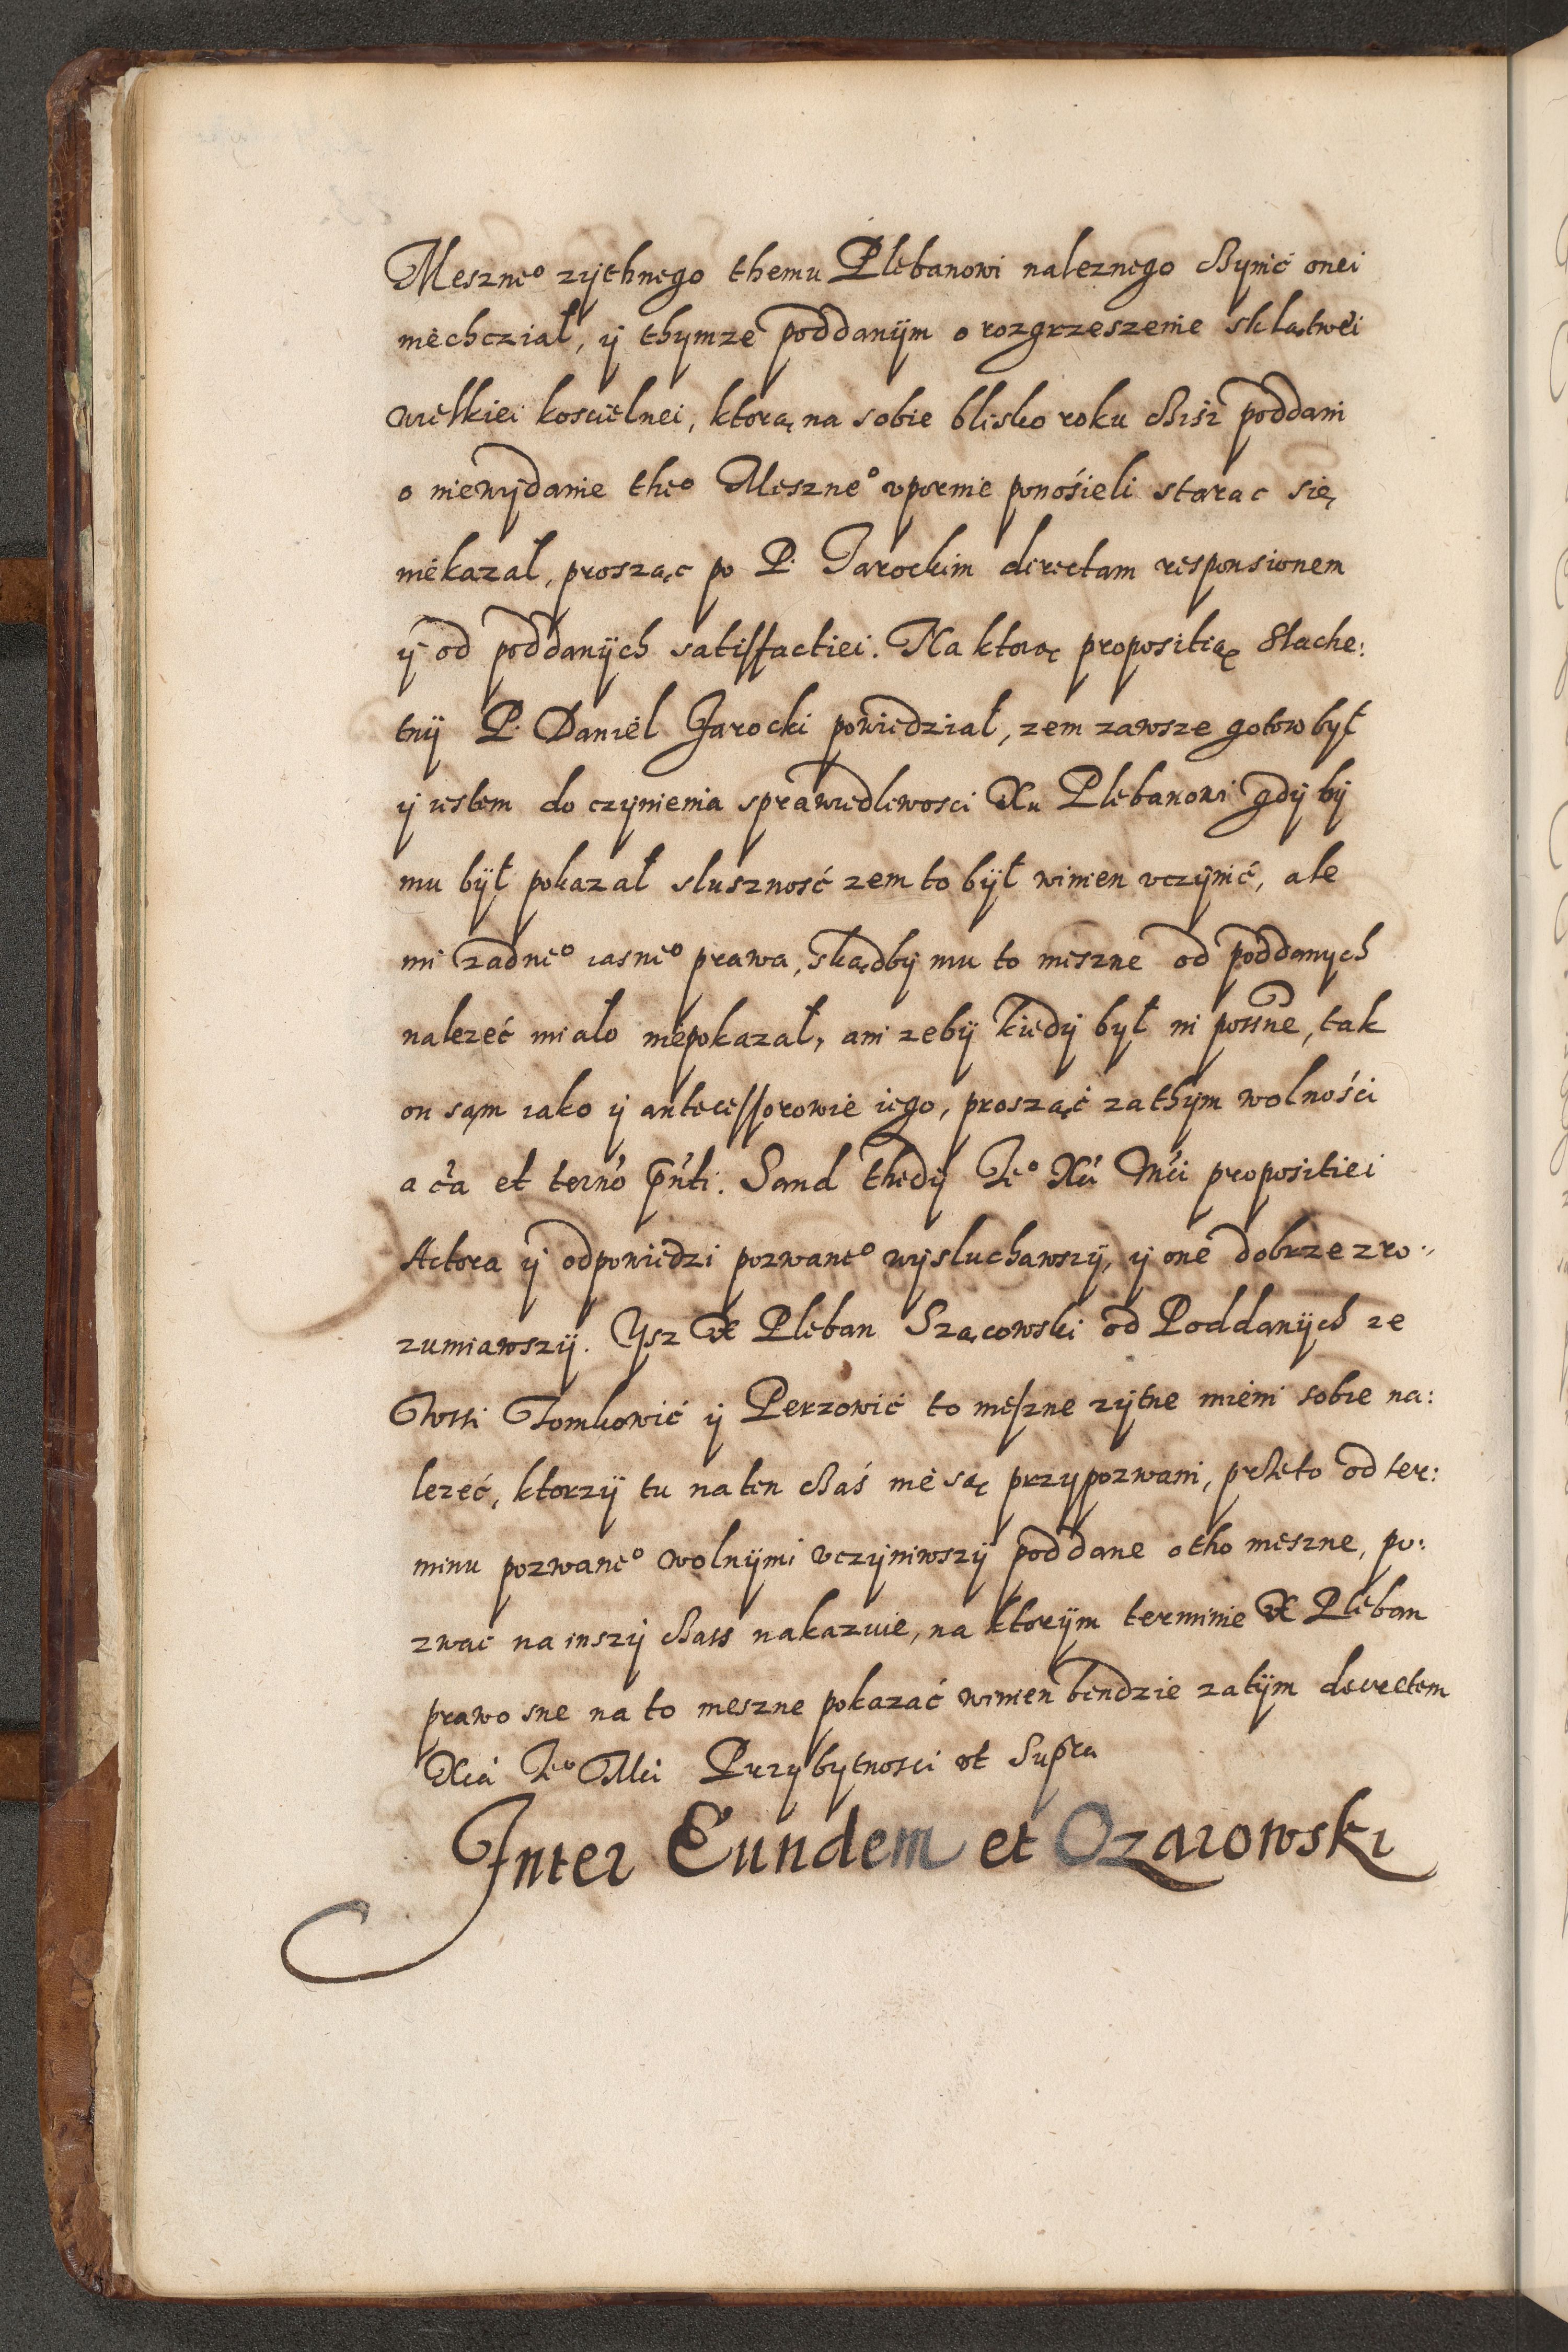 Meszne° zÿthnego themu Plebanowi naleznego czynić onei
niechcział, ÿ thymze poddanÿm o rozgrzeszenie sklątwei
wielkiei koscielnei, ktorą na sobie blisko roku ciż poddani
o niewÿdanie the° Meszne° upornie ponośieli starac się
niekazał, prosząc po P. Jarockim derectam responsionem
ÿ od poddanÿch satisfactiei. Na ktorą propositią Slache:
tnÿ P. Daniel Jarocki powiedział, zem zawsze gotow był
ÿ iestem do czynienia sprawiedlewosci Xu Plebanowi gdÿ bÿ
mu bÿł pokazał sluszność zem to bÿł winien uczÿnić, ale
mi zadne° iasne° prawa, skądbÿ mu to meszne od poddanych
nalezeć miało niepokazał, ani zebÿ kiedÿ był in possne, tak
on sąm iako ÿ antecessorowie iego, prosząc zathym wolności
a ca et terno pnti. Sand thedÿ Je° Xci Mci propositiei
Actora ÿ odpowiedzi pozwane° wÿsluchawszÿ, ÿ one dobrze zro:
zumiawszÿ. Ysz X Pleban Szącowski od Poddanÿch ze
Wssi Tomkowić ÿ Perzowić to meszne zÿtne mieni sobie na:
lezeć, ktorzÿ tu na ten czaś nie są przypozwani, przeto od ter:
minu pozwane° wolnÿmi uczÿniwszÿ poddane otho meszne, po:
zwac na inszÿ czass nakazuie, na ktorÿm terminie X Pleban
prawo sne na to meszne pokazać winien bendzie zatÿm decretem
Xcia Je° Mci Przybytnosci ut Supra
Inter Eundem et Ozarowski